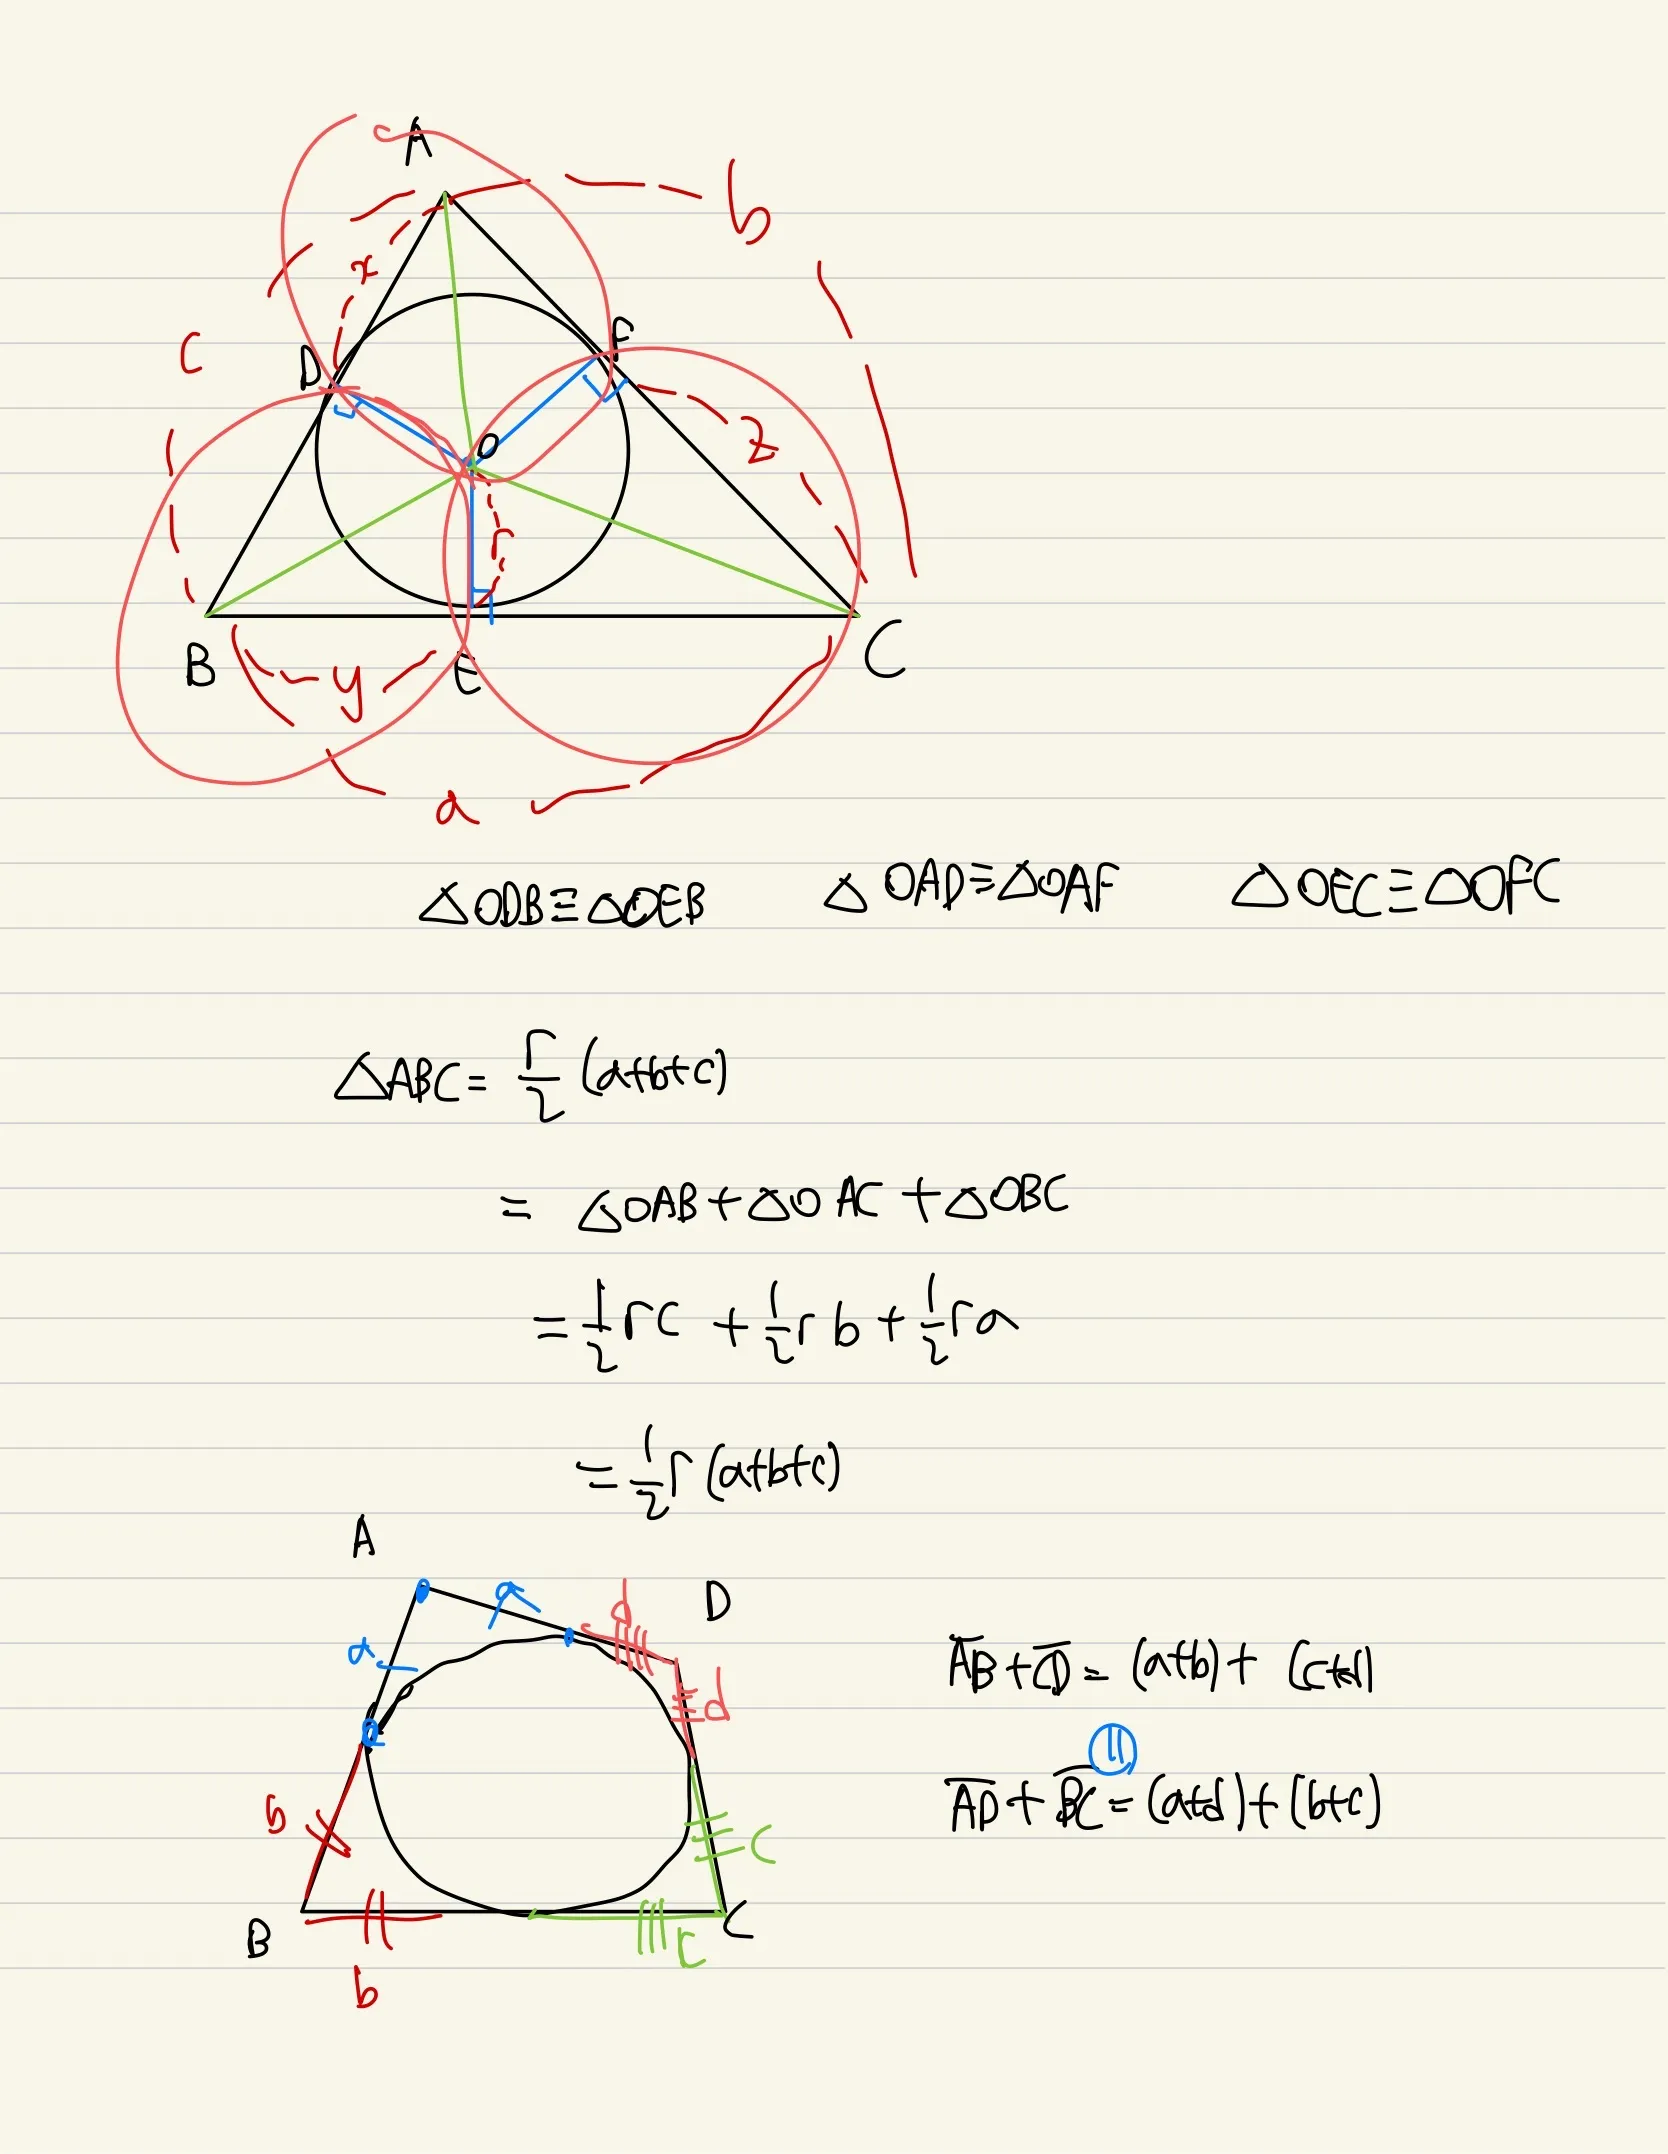 A
b
x
C
D
F
O
z
r
B
y
E
C
a
△ODB≡△OEB △OAD≡△OAF △OEC≡△OFC
△ABC = r/2 (a+b+c)
= △OAB + △OAC + △OBC
= 1/2 rc + 1/2 rb + 1/2 ra
= 1/2 r (a+b+c)
A
a
d
D
a
d
b
c
B
C
c
b
A̅B̅ + C̅D̅ = (a+b) + (c+d)
॥
A̅D̅ + B̅C̅ = (a+d) + (b+c)